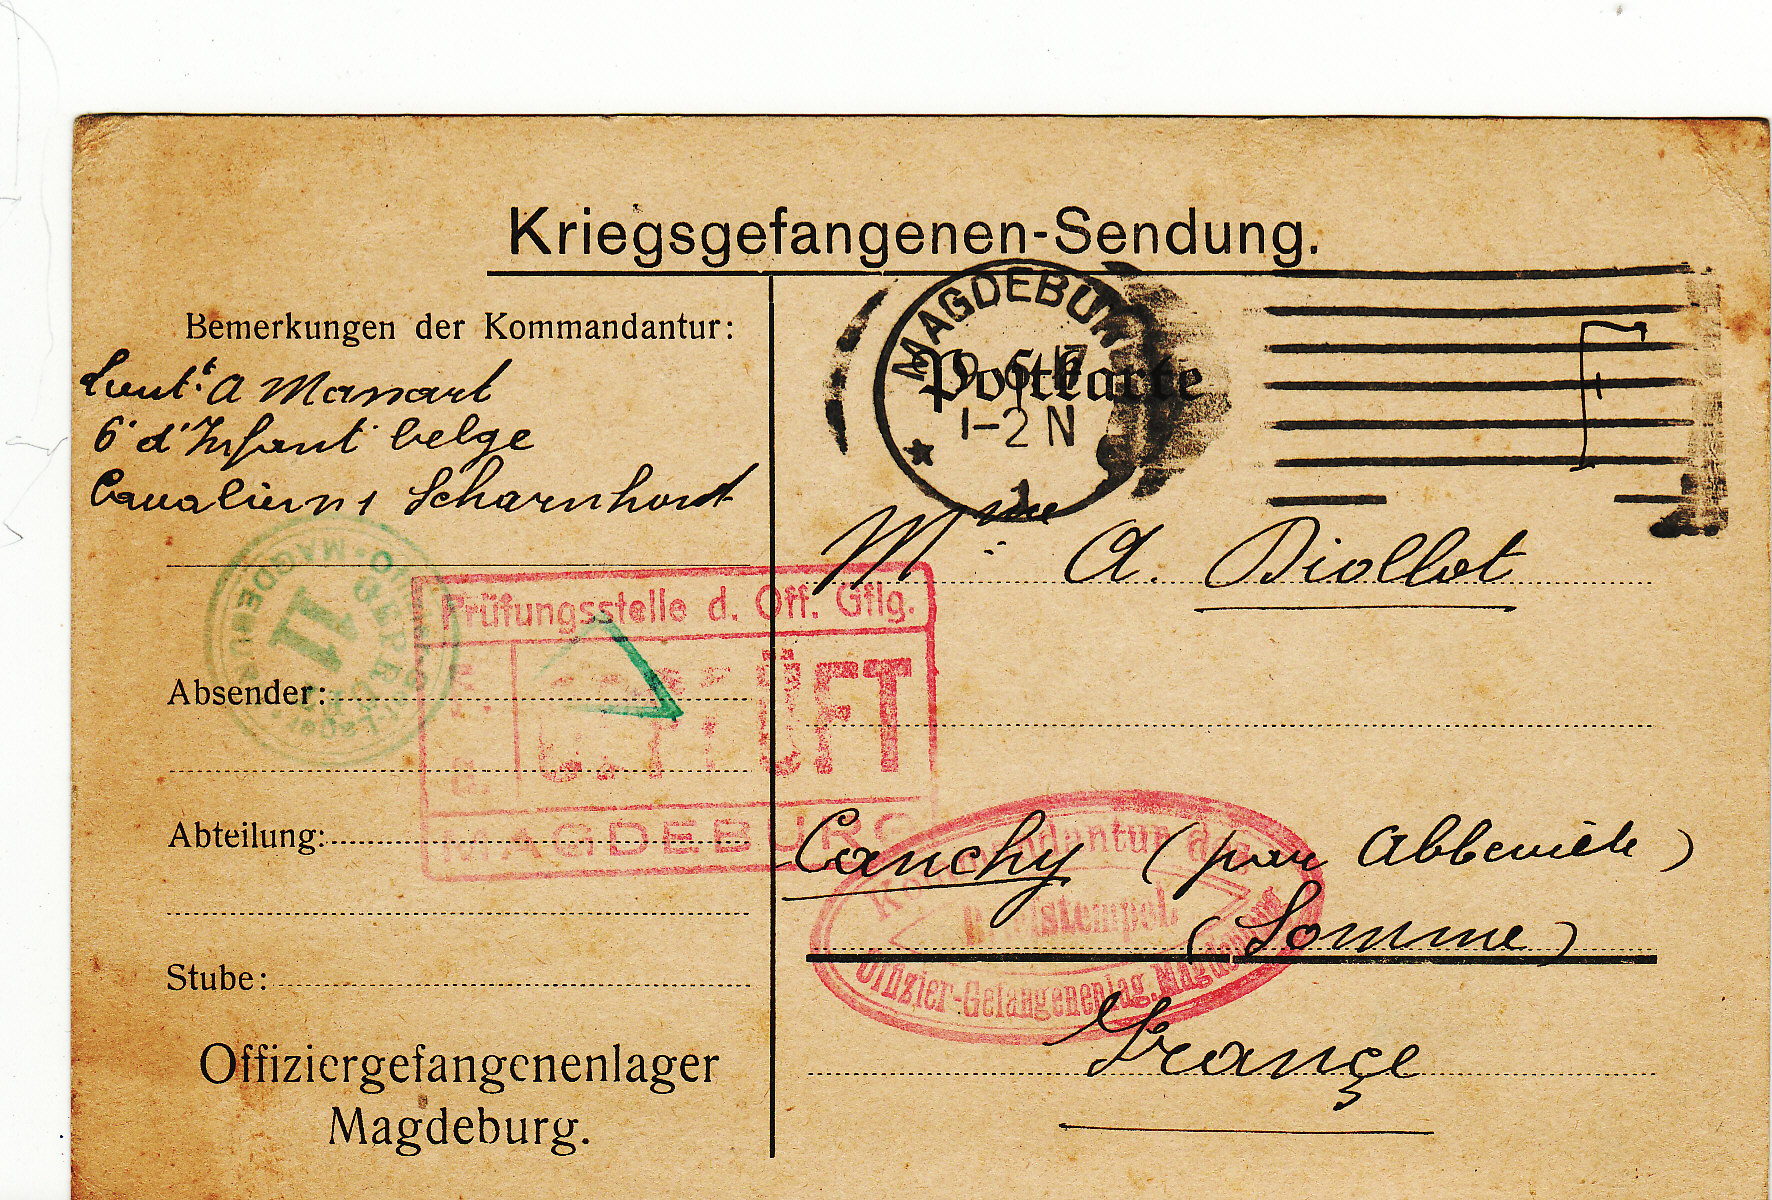 Kriegsgefangenen-Sendung.
Bemerkungen der Kommandantur:
Lieut.t A Manart
6e d'Infant belge
Cavalier n 1 Scharnhorst
MAGDEBURG
Postkarte
1-2 N
1
Mme A. Diollot
MAGDEBURG
11
Prüfungsstelle d. Off. Gflg.
GEPRÜFT
MAGDEBURG
Absender:
Abteilung:
Stube:
Canchy (par Abbeville)
(Somme)
France
Kommandantur des
Briefstempel.
Offizier-Gefangenenlag. Magdeburg
Offiziergefangenenlager
Magdeburg.